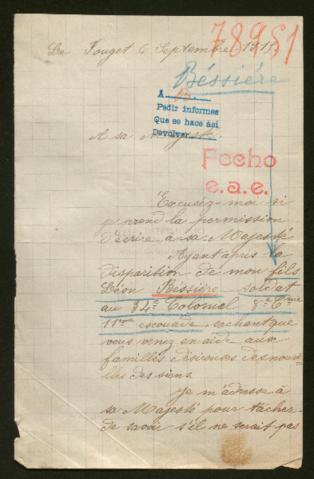 78951
Le Pouget 6 Septembre 1915
Béssière
A
Pedir informes
Que se hace así
Devolver
A sa Majesté
Fecho
e.a.e.
Excusez-moi si
je prend la permission
d'écrire à sa Majesté
Ayant apris la
disparition de mon fils
Léon Béssière soldat
au 34e Colonial 8e Cie
11me escouade sachant que
vous venez en aide aux
familles désireuses des nouv
elles des siens.
je m'adresse à
sa Majesté pour tacher
de savoir s'il ne serait pas